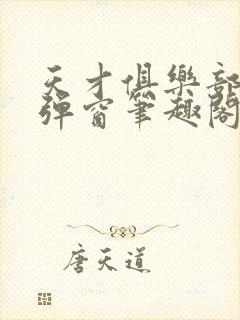 天才俱樂部
彈窗筆趣閣
唐天道